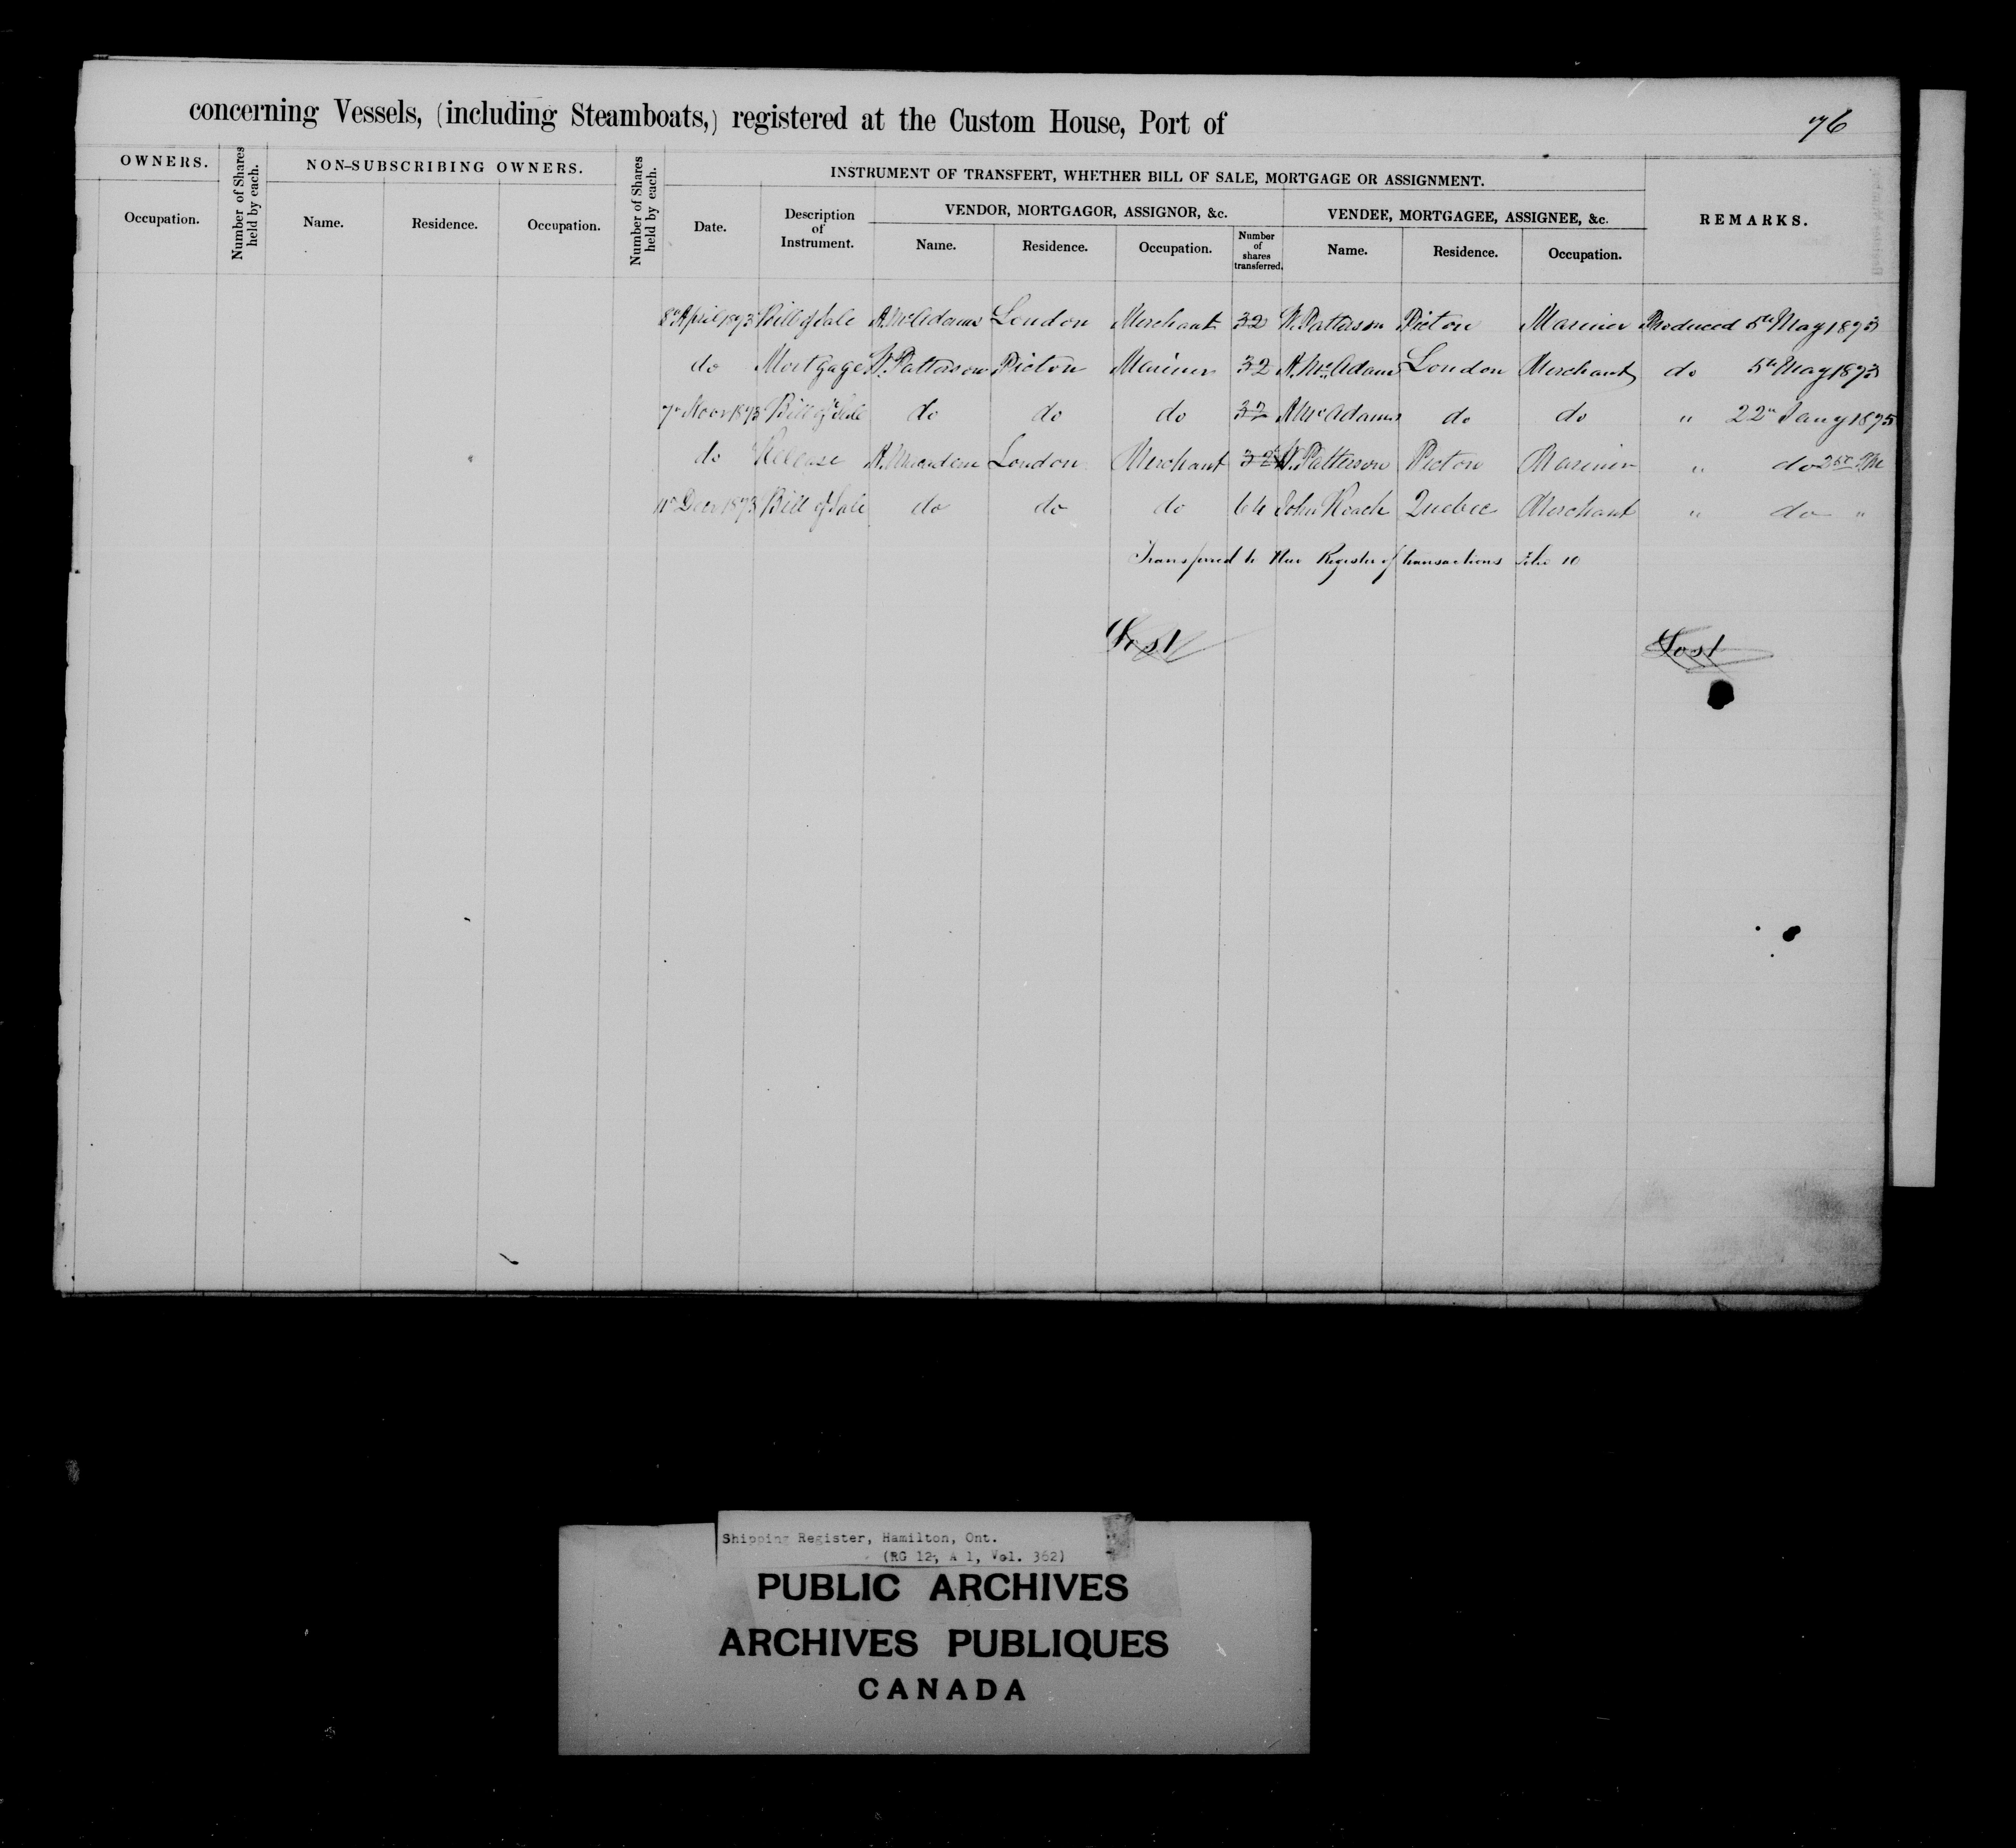 concerning Vessels, (including Steamboats,) registered at the Custom House, Port of
76
OWNERS.
Number of Shares held by each.
NON-SUBSCRIBING OWNERS.
Number of Shares held by each.
INSTRUMENT OF TRANSFERT, WHETHER BILL OF SALE, MORTGAGE OR ASSIGNMENT.
REMARKS.
Occupation.
Name.
Residence.
Occupation.
Date.
Description of Instrument.
VENDOR, MORTGAGOR, ASSIGNOR, &c.
VENDEE, MORTGAGEE, ASSIGNEE, &c.
Name.
Residence.
Occupation.
Number of shares transferred.
Name.
Residence.
Occupation.
8th April 1873 Bill of Sale A. McAdams London Merchant 32 W. Patterson Picton Mariner Produced 5th May 1873
do Mortgage W. Patterson Picton Mariner 32 A. McAdams London Merchant do 5th May 1873
7th Novr 1873 Bill of Sale do do do 32 A McAdams do do " 22nd Jany 1875
do Release London Merchant 32 W. Patterson Picton Mariner " do
11th Decr 1873 Bill of Sale do do do 64 John Roach Quebec Merchant " do "
Transferred to New Register of transactions Folio 10
Lost
Lost
Shipping Register, Hamilton, Ont.
(RG 12, A 1, Vol. 362)
PUBLIC ARCHIVES
ARCHIVES PUBLIQUES
CANADA